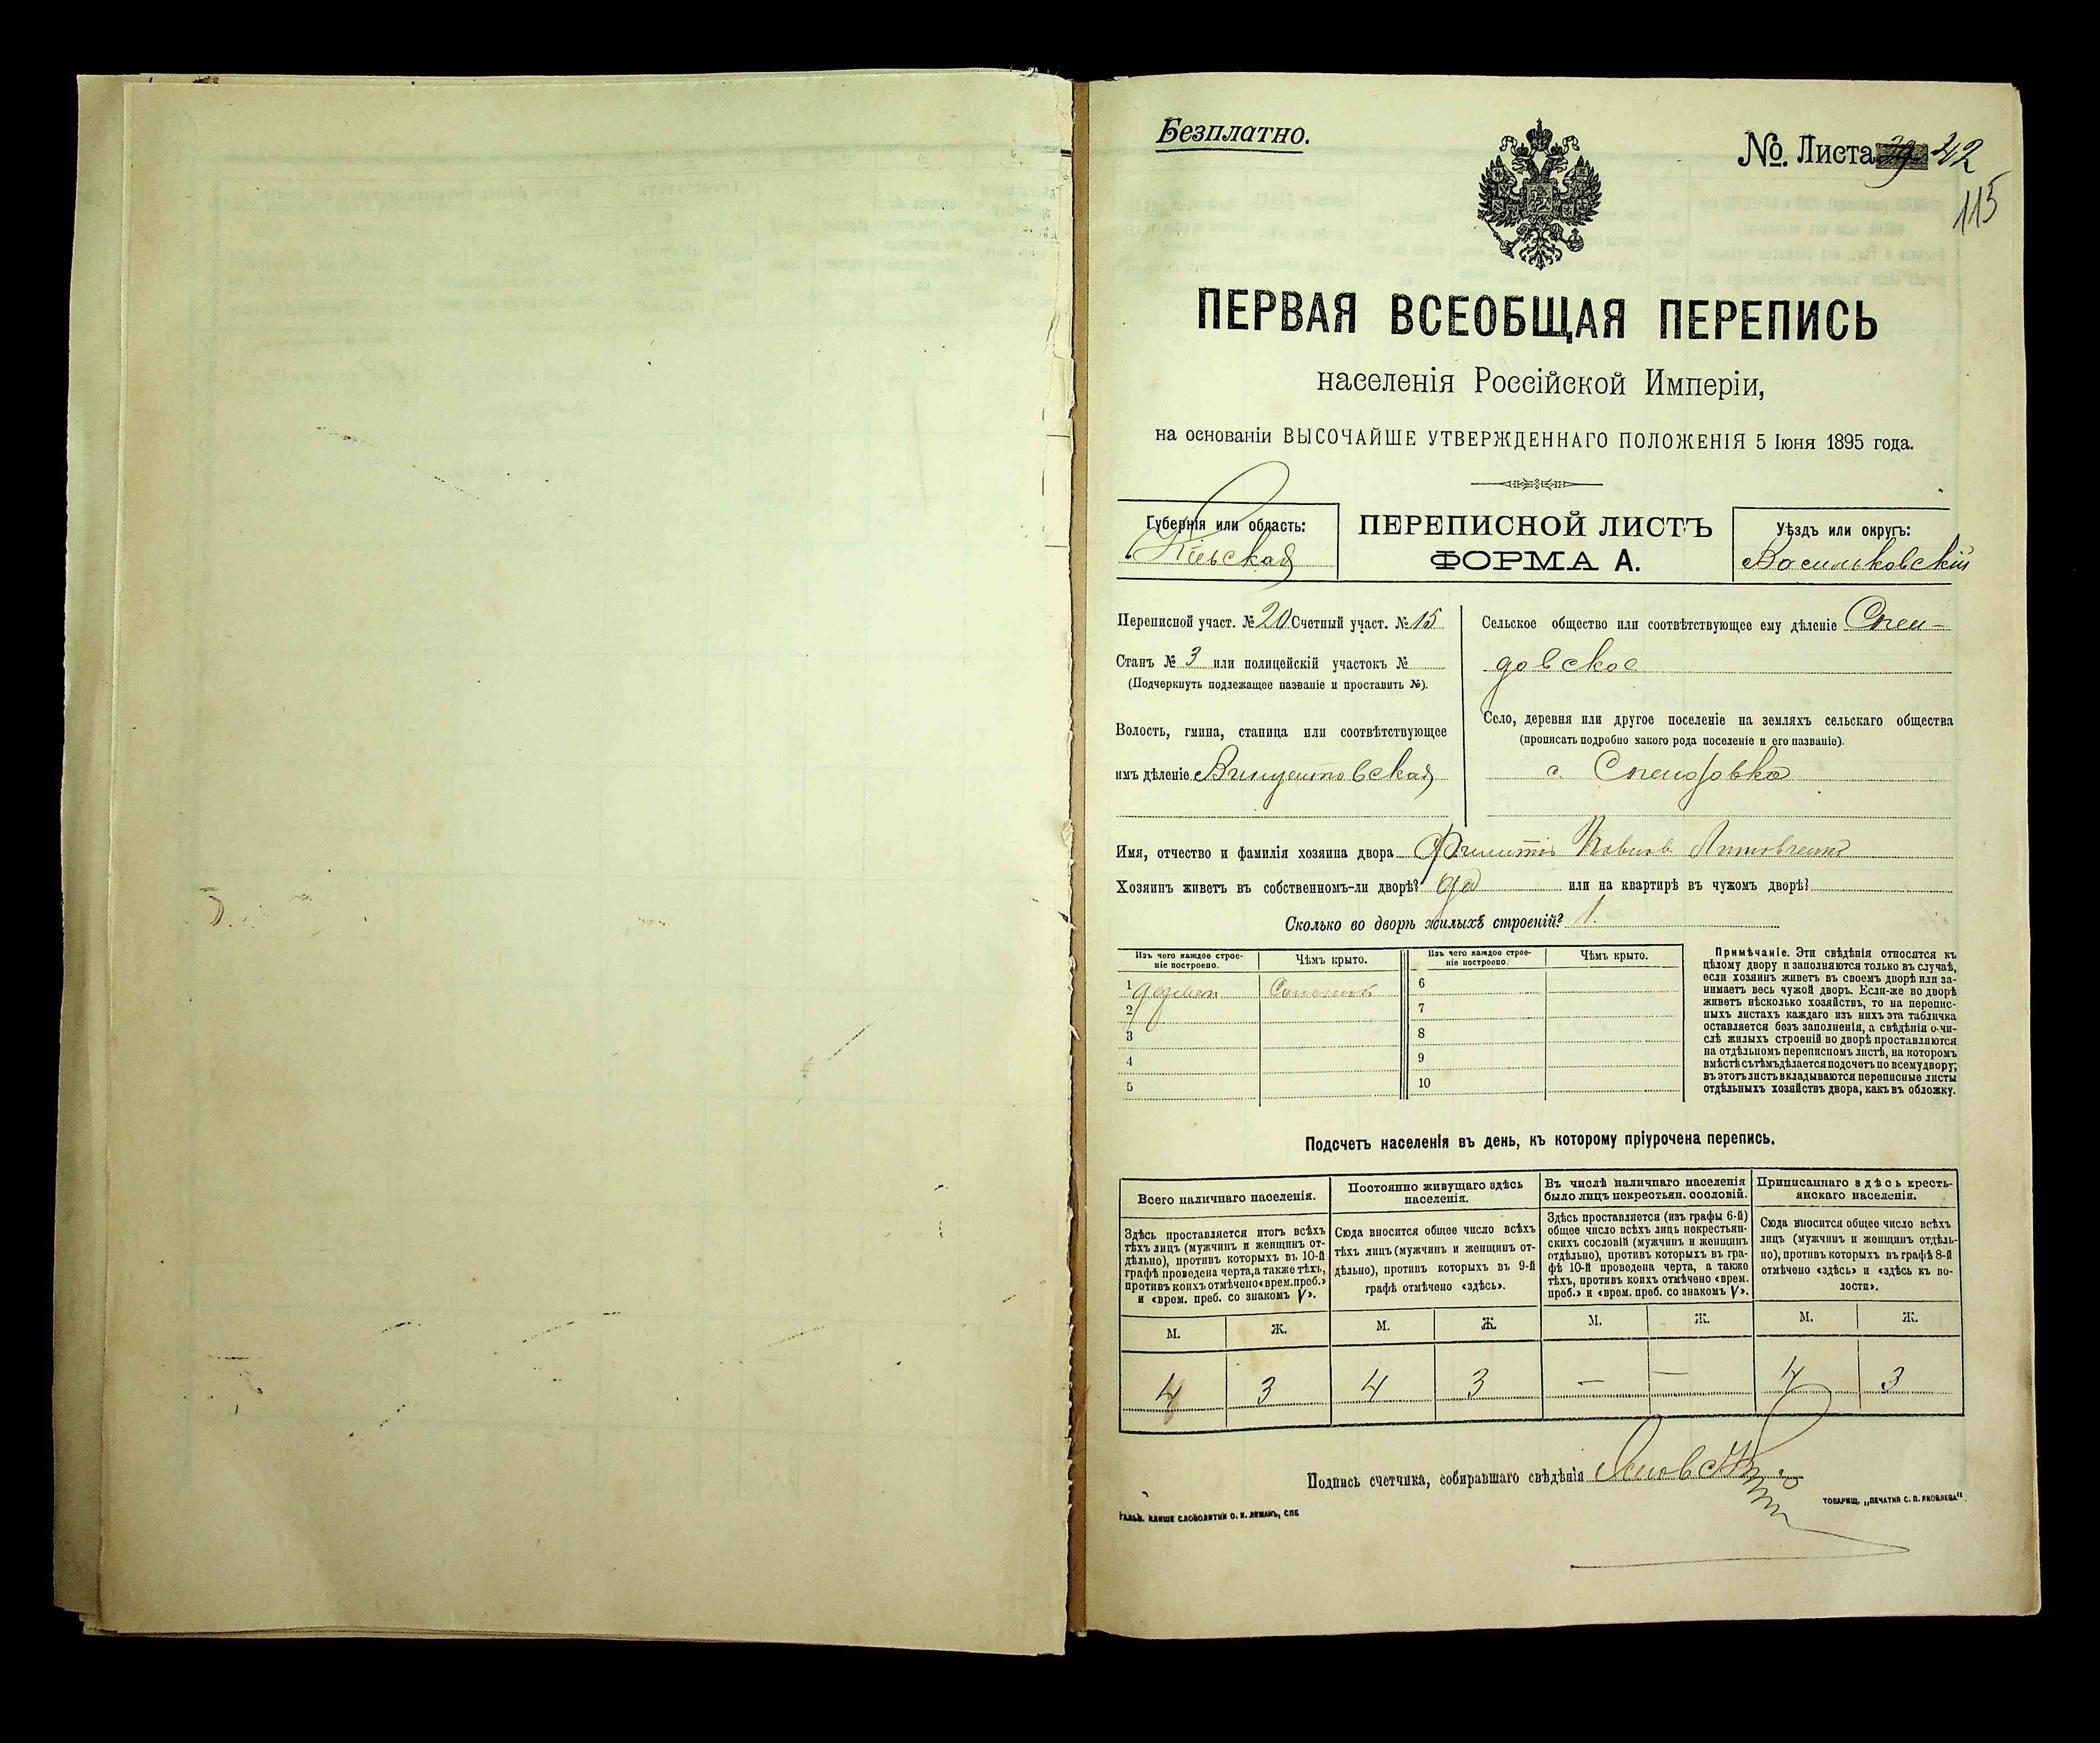 Безплатно.
№. Листа 42
115
ПЕРВАЯ ВСЕОБЩАЯ ПЕРЕПИСЬ
населенія Россійской Имперіи,
на основаніи ВЫСОЧАЙШЕ УТВЕРЖДЕННАГО ПОЛОЖЕНІЯ 5 Іюня 1895 года.
Губернія или область:
Кіевская
ПЕРЕПИСНОЙ ЛИСТЪ
ФОРМА А.
Уѣздъ или округъ:
Васильковскій
Переписной участ. № 20 Счетный участ. № 15
Станъ № 3 или полицейскій участокъ №
(Подчеркнуть подлежащее названіе и проставить №).
Волость, гмина, станица или соотвѣтствующее
имъ дѣленіе Винцентовская
Сельское общество или соотвѣтствующее ему дѣленіе Спен-
довское
Село, деревня или другое поселеніе на земляхъ сельскаго общества
(прописать подробно какого рода поселеніе и его названіе).
с. Спендовка
Имя, отчество и фамилія хозяина двора
Хозяинъ живетъ въ собственномъ-ли дворѣ? да или на квартирѣ въ чужомъ дворѣ?
Сколько во дворѣ жилыхъ строеній? 1.
Изъ чего каждое строе-
ніе построено.
Чѣмъ крыто.
Изъ чего каждое строе-
ніе построено.
Чѣмъ крыто.
1 дерев. Соломой 6
2 7
3 8
4 9
5 10
Примѣчаніе. Эти свѣдѣнія относятся къ
цѣлому двору и заполняются только въ случаѣ,
если хозяинъ живетъ въ своемъ дворѣ или за-
нимаетъ весь чужой дворъ. Если-же во дворѣ
живетъ нѣсколько хозяйствъ, то на перепис-
ныхъ листахъ каждаго изъ нихъ эта табличка
оставляется безъ заполненія, а свѣдѣнія о чи-
слѣ жилыхъ строеній во дворѣ проставляются
на отдѣльномъ переписномъ листѣ, на которомъ
вмѣстѣ съ тѣмъ дѣлается подсчетъ по всему двору;
въ этотъ листъ вкладываются переписные листы
отдѣльныхъ хозяйствъ двора, какъ въ обложку.
Подсчетъ населенія въ день, къ которому пріурочена перепись.
Всего наличнаго населенія.
Здѣсь проставляется итогъ всѣхъ
тѣхъ лицъ (мужчинъ и женщинъ от-
дѣльно), противъ которыхъ въ 10-й
графѣ проведена черта, а также тѣхъ,
противъ коихъ отмѣчено «врем. преб.»
и «врем. преб. со знакомъ V».
Постоянно живущаго здѣсь
населенія.
Сюда вносится общее число всѣхъ
тѣхъ лицъ (мужчинъ и женщинъ от-
дѣльно), противъ которыхъ въ 9-й
графѣ отмѣчено «здѣсь».
Въ числѣ наличнаго населенія
было лицъ некрестьян. сословій.
Здѣсь проставляется (изъ графы 6-й)
общее число всѣхъ лицъ некрестьян-
скихъ сословій (мужчинъ и женщинъ
отдѣльно), противъ которыхъ въ гра-
фѣ 10-й проведена черта, а также
тѣхъ, противъ коихъ отмѣчено «врем.
преб.» и «врем. преб. со знакомъ V».
Приписаннаго здѣсь кресть-
янскаго населенія.
Сюда вносится общее число всѣхъ
лицъ (мужчинъ и женщинъ отдѣль-
но), противъ которыхъ въ графѣ 8-й
отмѣчено «здѣсь» и «здѣсь къ во-
лости».
М. Ж. М. Ж. М. Ж. М. Ж.
4 3 4 3 — — 4 3
Подпись счетчика, собиравшаго свѣдѣнія
ГАЛЬВ. КЛИШЕ СЛОВОЛИТНИ О. И. ЛЕМАНЪ, СПБ
ТОВАРИЩ. „ПЕЧАТНЯ С. П. ЯКОВЛЕВА".